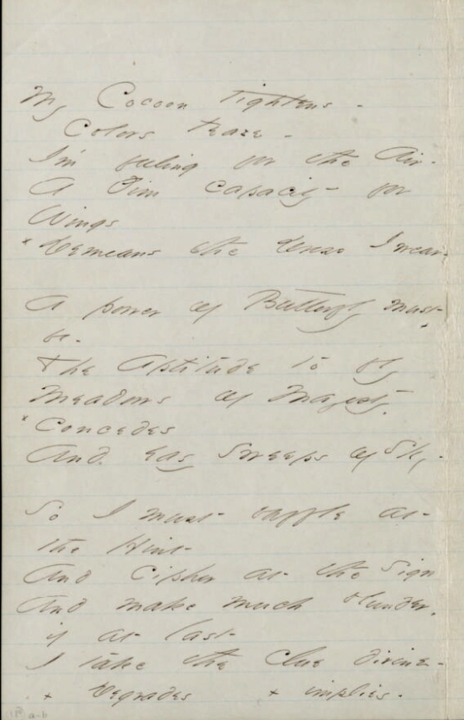 My Cocoon tightens -
Colors tease -
I'm feeling for the Air -
A dim capacity for
Wings
+ Demeans the Dress I wear -
A power of Butterfly must
be -
The Aptitude to fly
Meadows of Majesty
+ concedes
And easy Sweeps of Sky -
So I must baffle at
the Hint
And Cipher at the Sign
And make much blunder,
if at last
I take the clue divine -
+ Degrades + implies -